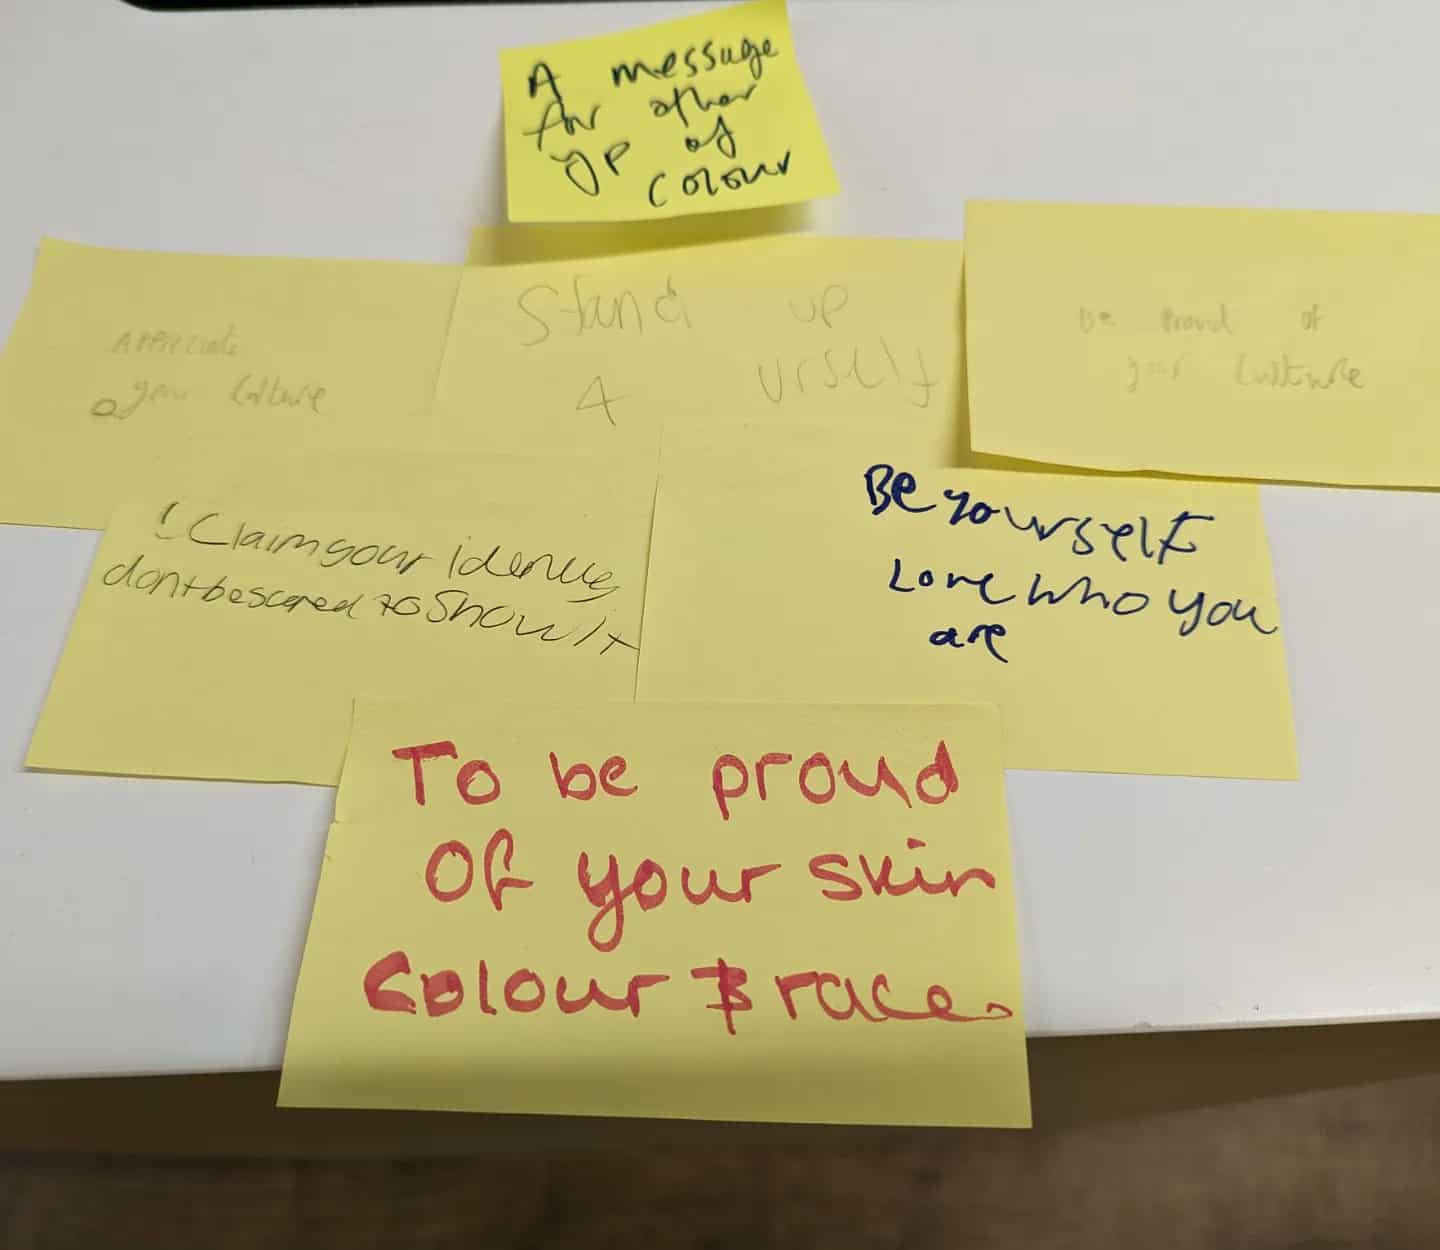 A message
for other
YP of
colour
Appreciate
your culture
Stand up
4 urself
Be Proud of
your culture
Claim your identity
dont be scared to show it
Be yourself
Love who you
are
To be proud
Of your skin
Colour & race.